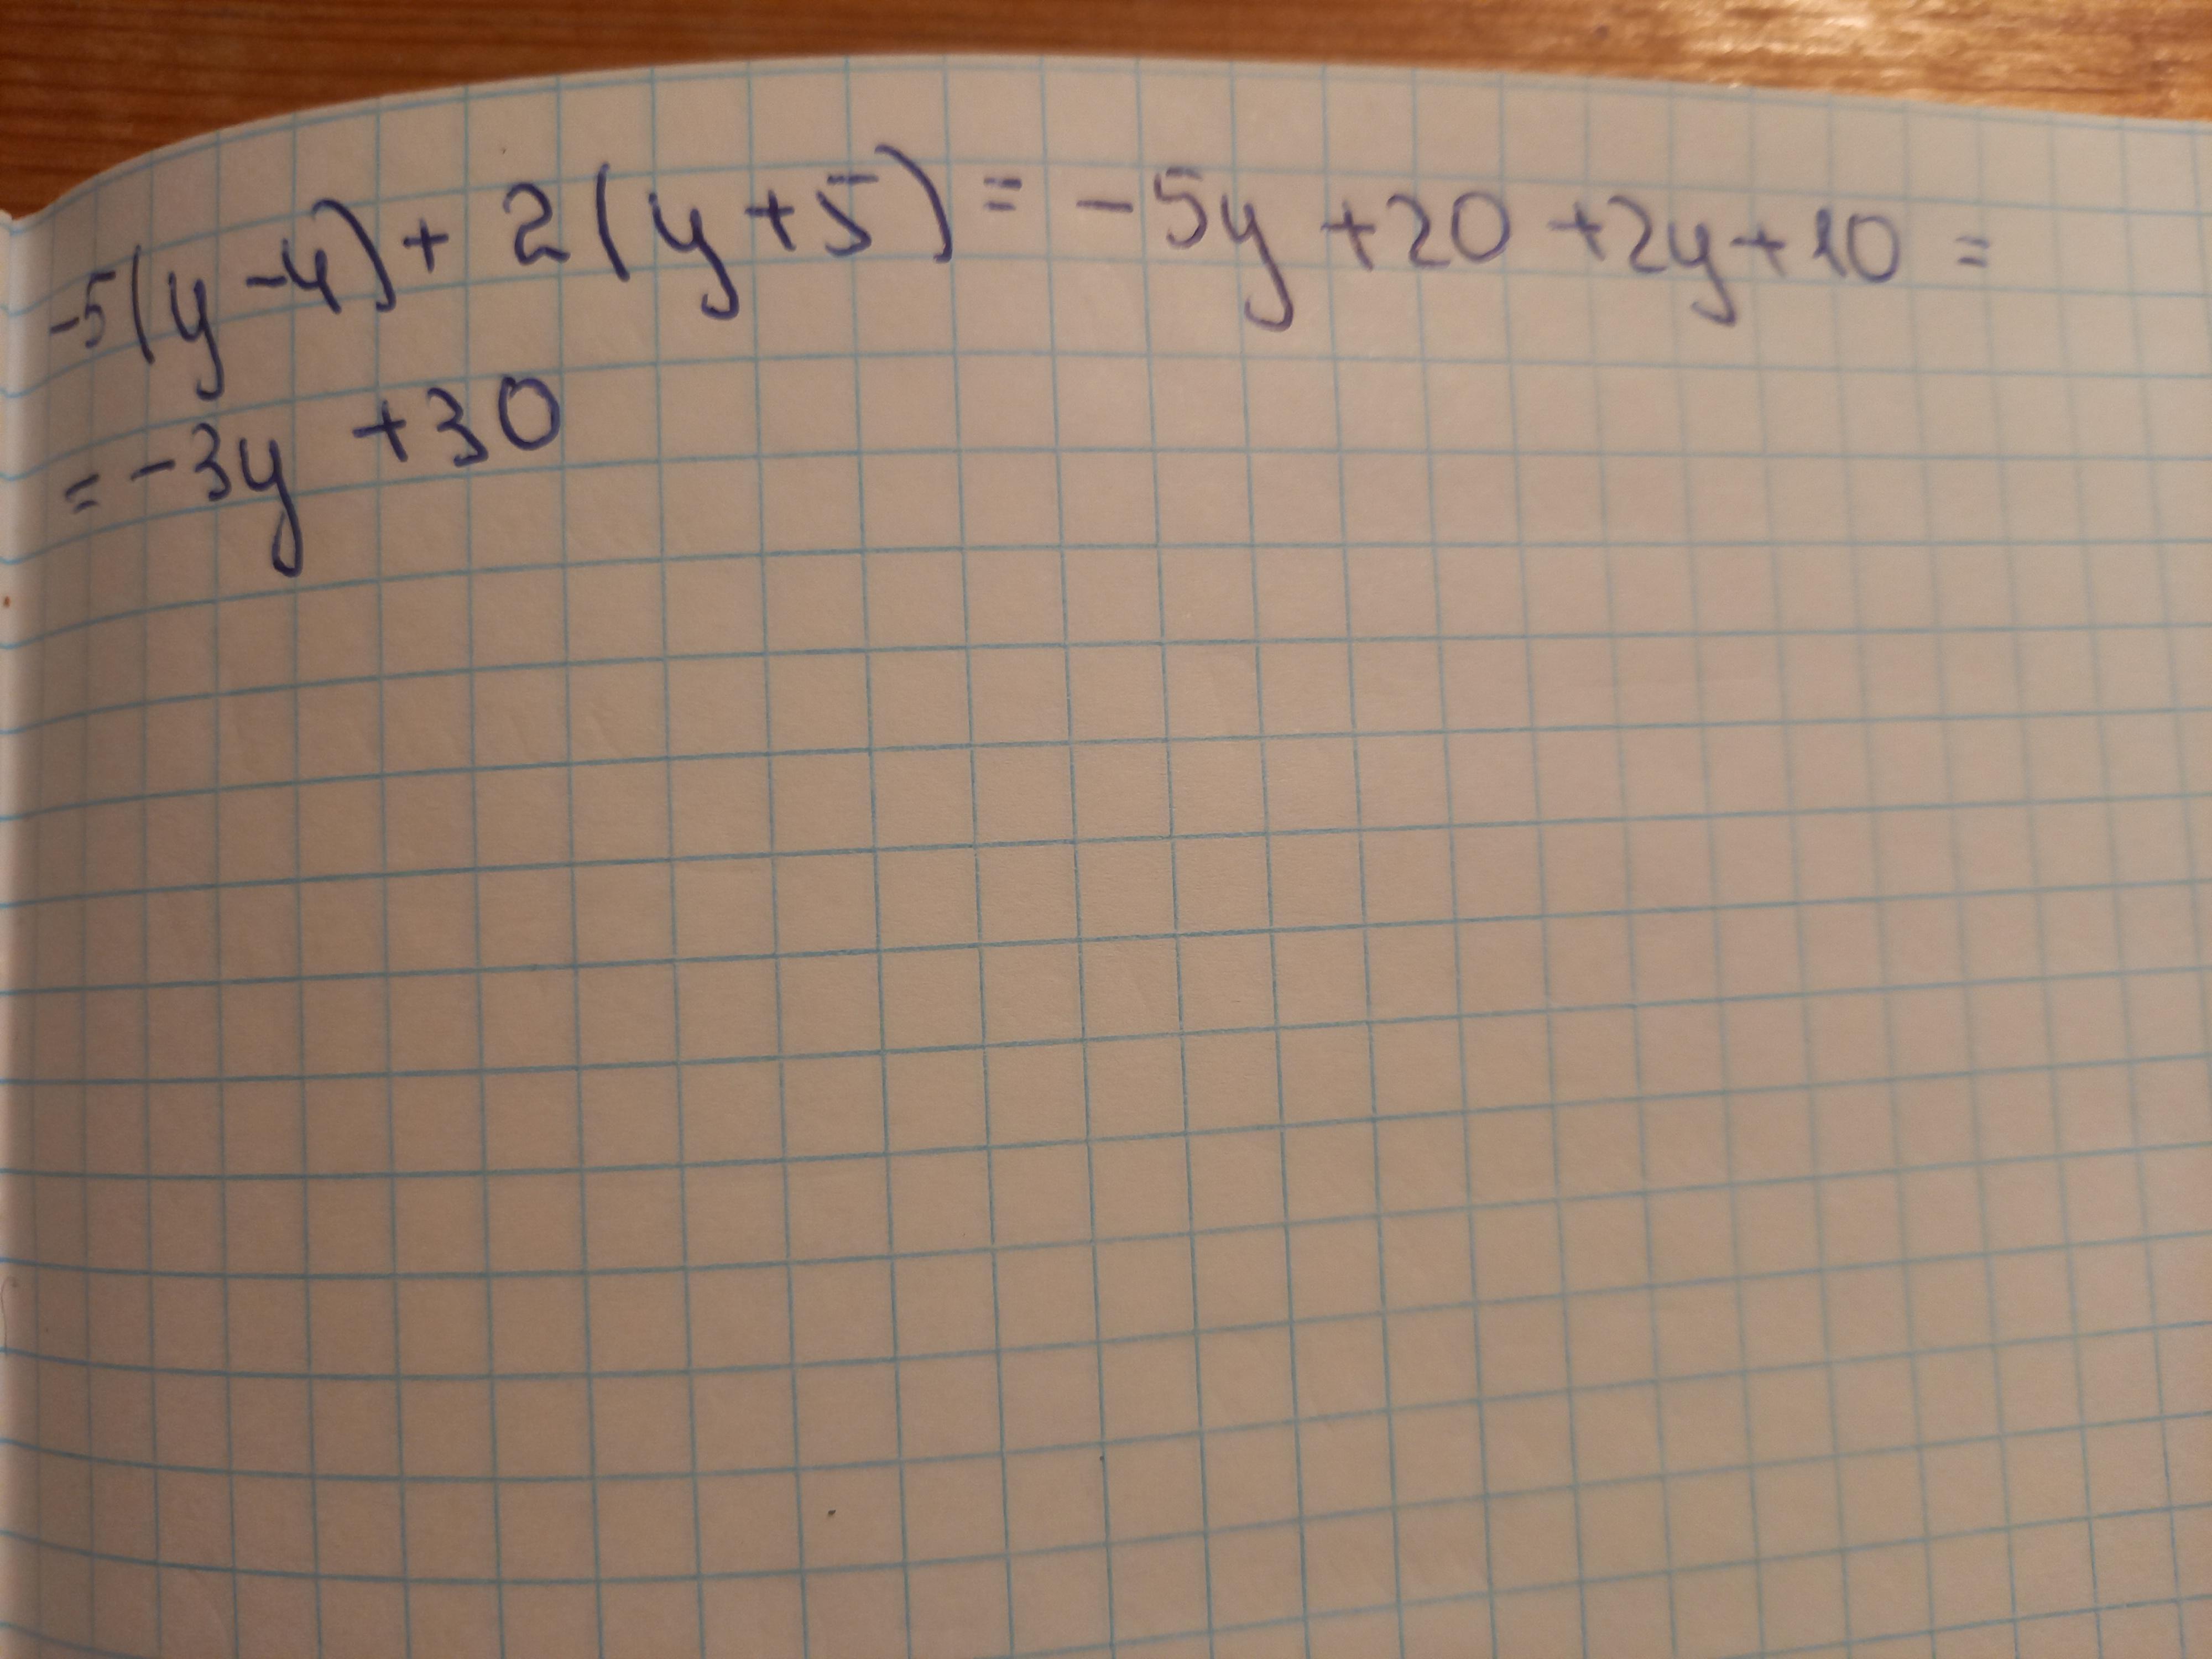 -5(y-4)+2(y+5)=-5y+20+2y+10=
=-3y+30